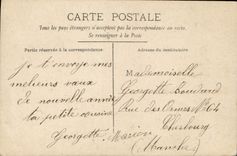 CARTE POSTALE
Tous les pays étrangers n'acceptent pas la correspondance au recto.
Se renseigner à la Poste
Partie réservée à la correspondance
Adresse du destinataire
je t'envoye mes
meilleurs vœux
de nouvelle année
ta petite cousine
Georgette Marion
Mademoiselle
Georgette
Rue des Ormes No 64
Cherbourg
(Manche)